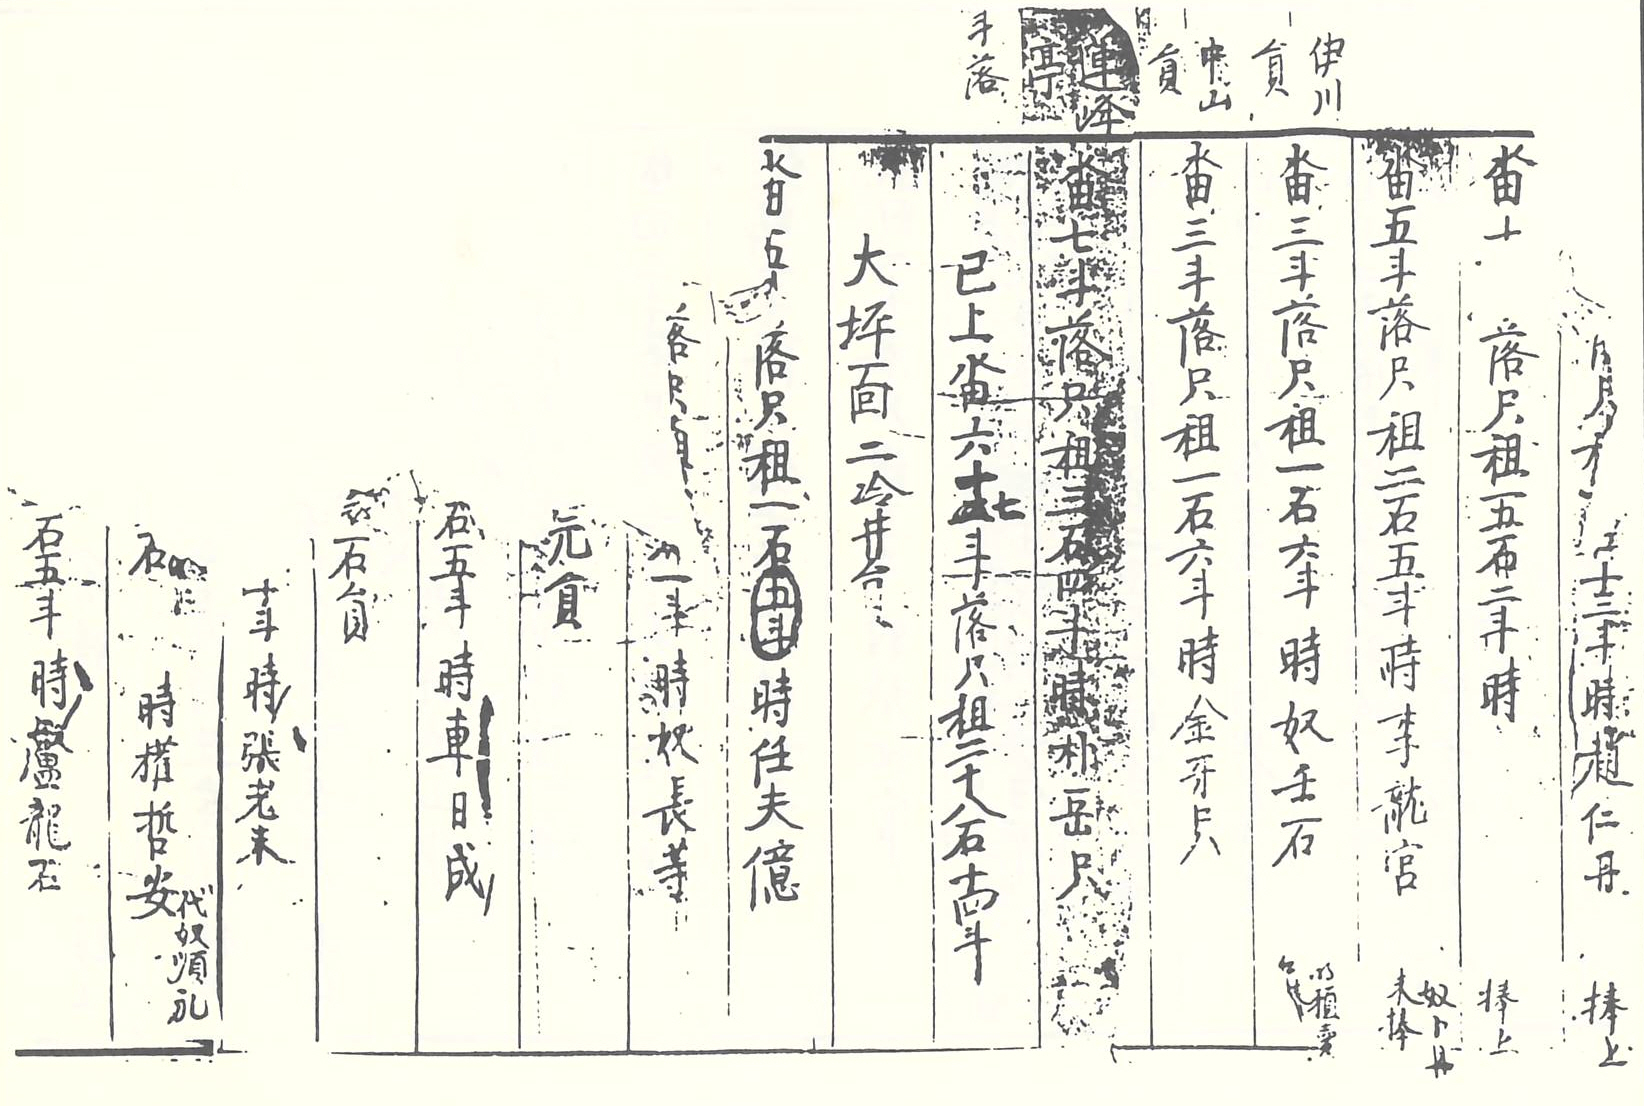 十三斗時趙仁丹 捧上
畓十 落只租五石二斗時 捧上
畓五斗落只租二石五斗時李龍宮 奴卜丹 未捧
伊川員
畓三斗落只租一石六斗時奴壬石
中山員
畓三斗落只租一石六斗時金牙只
蓮峰亭
畓七斗落只租三石四斗時朴岳只
斗落
已上畓六十七斗落只租二十八石十四斗
大坪面二冷井
畓五斗落只租一石五斗時任夫億
落只租
一斗時 長
元員
石五斗時車日成
石員
十斗時張老末
石 時權哲安 代奴順礼
石五斗時盧龍石